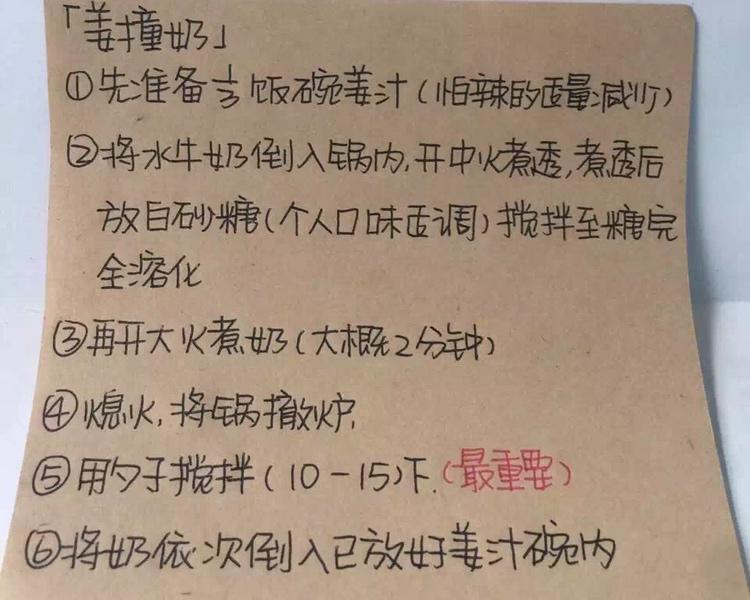 「姜撞奶」
①先准备⅓饭碗姜汁(怕辣的适量减少)
②将水牛奶倒入锅内,开中火煮透,煮透后
放白砂糖(个人口味适调)搅拌至糖完
全溶化
③再开大火煮奶(大概2分钟)
④熄火,将锅撤炉,
⑤用勺子搅拌(10-15)下.(最重要)
⑥将奶依次倒入已放好姜汁碗内